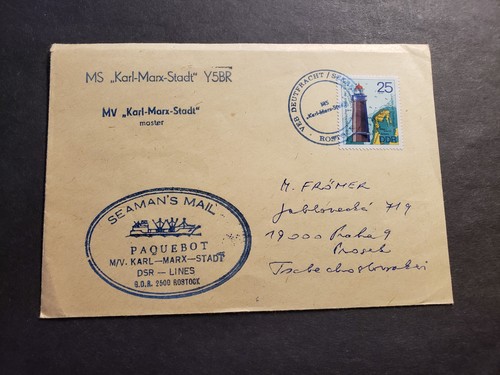 MS „Karl-Marx-Stadt" Y5BR
MV „Karl-Marx-Stadt"
master
VEB DEUTFRACHT / SEE
MS
„Karl-Marx-Stadt"
ROST
25
DDR
SEAMAN'S MAIL
PAQUEBOT
M/V. KARL—MARX—STADT
DSR — LINES
G.D.R. 2500 ROSTOCK
M. FRÖMER
Jablonecká 719
19000 Praha 9
Prosek
Tschechoslowakei